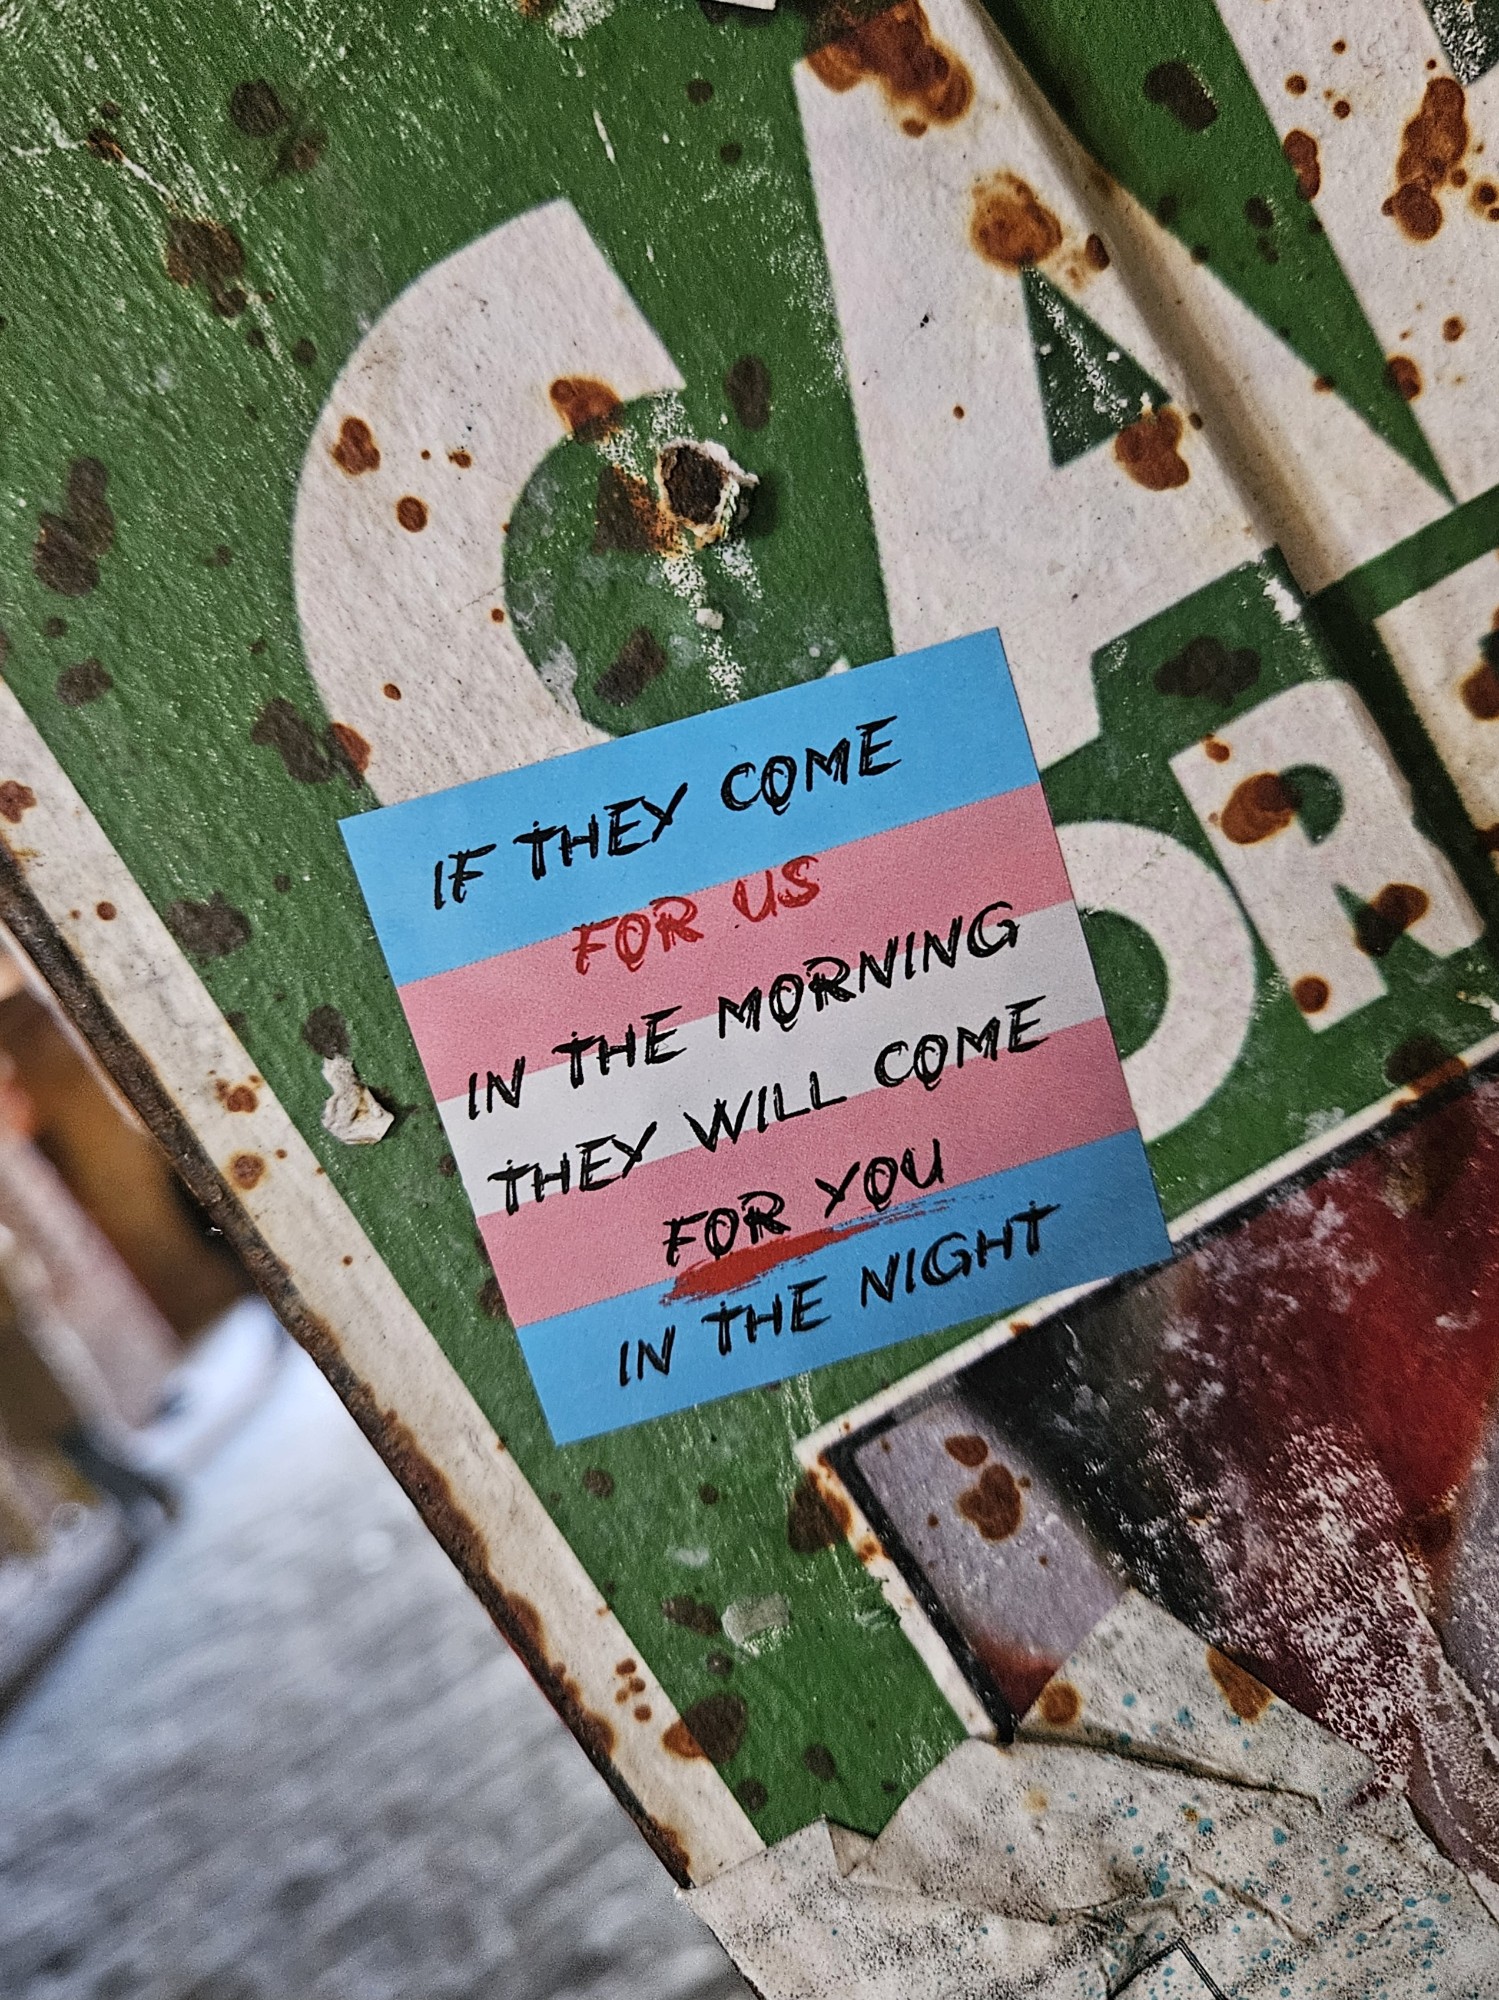 CA
OR
IF THEY COME
FOR US
IN THE MORNING
THEY WILL COME
FOR YOU
IN THE NIGHT